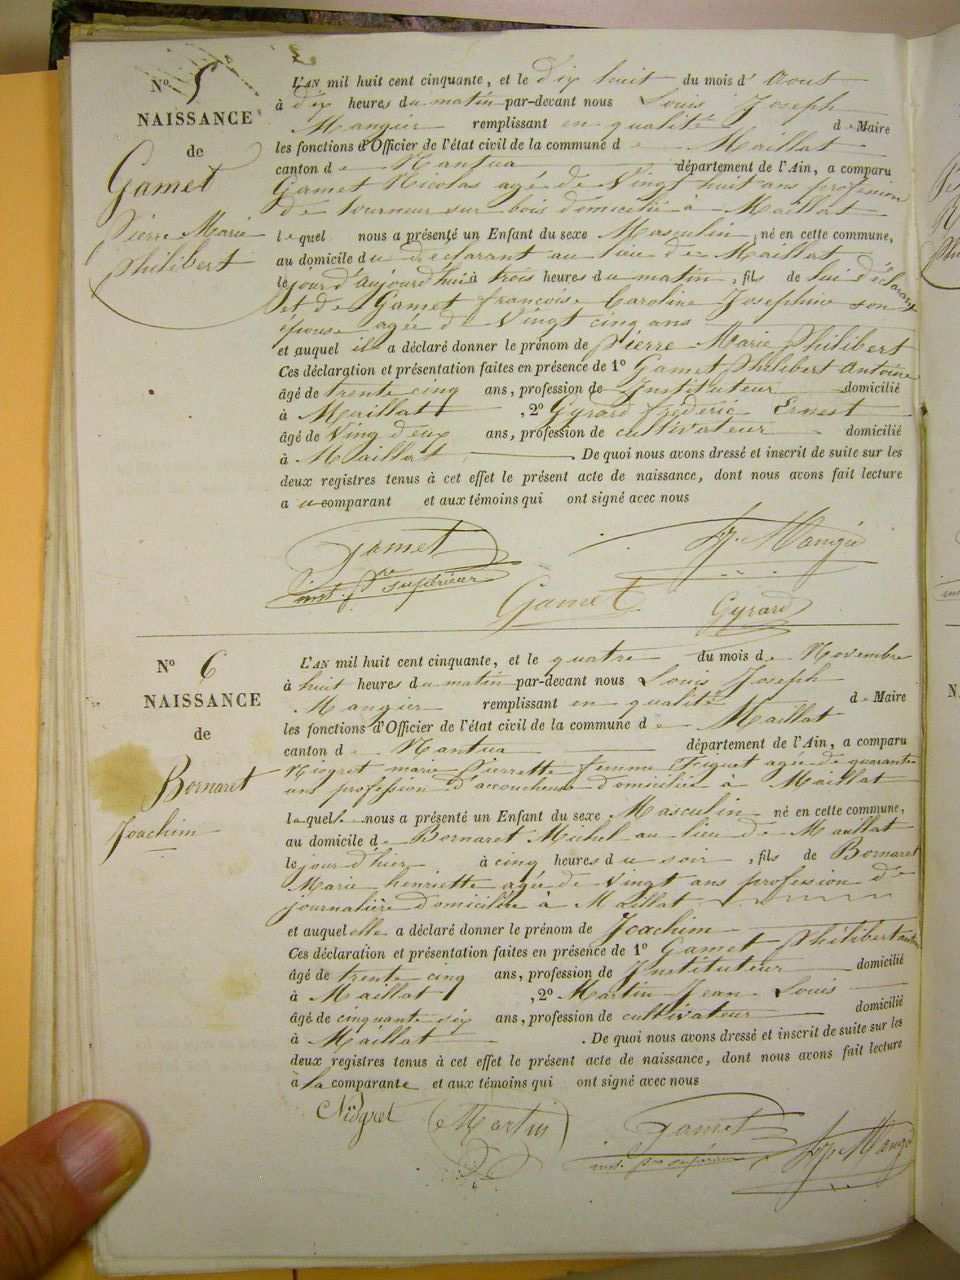 N° 5
NAISSANCE
de
Gamet
Pierre Marie
Philibert
L'AN mil huit cent cinquante, et le dix huit du mois d' Aout
à dix heures du matin par-devant nous Louis Joseph
Mangier remplissant en qualité de Maire
les fonctions d'Officier de l'état civil de la commune de Maillat
canton de Nantua département de l'Ain, a comparu
Gamet Nicolas agé de Vingt huit ans profession
de tourneur sur bois domicilié à Maillat
lequel nous a présenté un Enfant du sexe Masculin, né en cette commune,
au domicile du déclarant au lieu de Maillat
le jour d'aujourd'hui à trois heures du matin, fils de lui déclarant
et de Gamet françoise Caroline Josephine son
épouse agée de Vingt cinq ans
et auquel il a déclaré donner le prénom de Pierre Marie Philibert
Ces déclaration et présentation faites en présence de 1° Gamet Philibert Antoine
âgé de trente cinq ans, profession de Instituteur domicilié
à Maillat, 2° Gyrard fréderic Ernest
âgé de Ving deux ans, profession de cultivateur domicilié
à Maillat. De quoi nous avons dressé et inscrit de suite sur les
deux registres tenus à cet effet le présent acte de naissance, dont nous avons fait lecture
au comparant et aux témoins qui ont signé avec nous
Gamet
inst. pre supérieur
Mangié
Gamet Gyrard
N° 6
NAISSANCE
de
Bornaret
Joachim
L'AN mil huit cent cinquante, et le quatre du mois de Novembre
à huit heures du matin par-devant nous Louis Joseph
Mangier remplissant en qualité de Maire
les fonctions d'Officier de l'état civil de la commune de Maillat
canton de Nantua département de l'Ain, a comparu
Niogret marie Pierrette femme agée de quarante
ans profession d'accoucheuse domiciliée à Maillat
laquelle nous a présenté un Enfant du sexe Masculin né en cette commune,
au domicile de Bornaret Michel au lieu de Maillat
le jour d'hier à cinq heures du soir, fils de Bornaret
Marie henriette agée de Vingt ans profession de
journalière domiciliée à Maillat
et auquel elle a déclaré donner le prénom de Joachim
Ces déclaration et présentation faites en présence de 1° Gamet Philibert
âgé de trente cinq ans, profession de Instituteur domicilié
à Maillat, 2° Martin Jean Louis
âgé de cinquante six ans, profession de cultivateur domicilié
à Maillat. De quoi nous avons dressé et inscrit de suite sur les
deux registres tenus à cet effet le présent acte de naissance, dont nous avons fait lecture
à la comparante et aux témoins qui ont signé avec nous
Niogret Martin Gamet
inst. pre supérieur